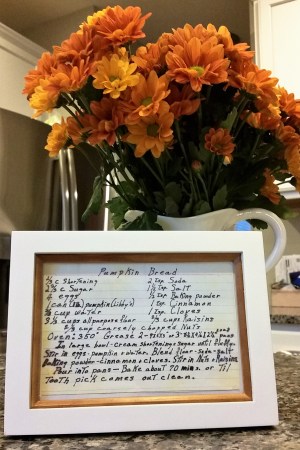 Pumpkin Bread
2/3 c Shortening 2 tsp Soda
2 2/3 c Sugar 1 1/2 tsp Salt
4 eggs 1/2 tsp Baking powder
1 can pumpkin (Libby's) 1 tsp Cinnamon
2/3 cup water 1 tsp Cloves
3 1/3 cups all purpose flour 2/3 cups Raisins
2/3 cup coarsely chopped Nuts
Oven 350° Grease 2- loaf pans
In large bowl-cream shortening & sugar until fluffy.
Stir in eggs-pumpkin & water. Blend flour-Soda-Salt
Baking powder-Cinnamon & cloves. Stir in Nuts & Raisins.
Pour into pans-Bake about 70 mins. or Til
Tooth pick comes out clean.